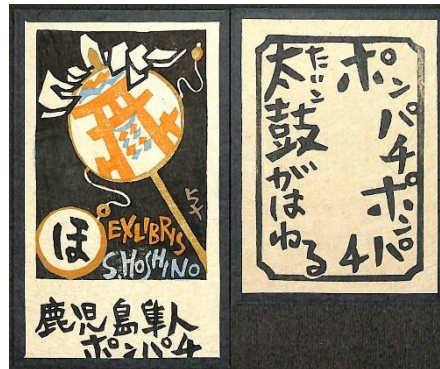 ほ
EXLIBRIS
S.HOSHINO
鹿児島隼人
ポンパチ
ポンパチポンパチ
たいこ
太鼓がはねる